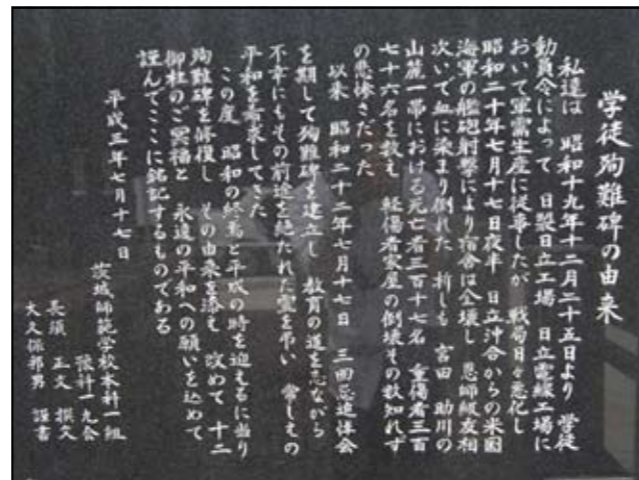 学徒殉難碑の由来
私達は 昭和十九年十二月二十五日より 学徒
動員令によって 日製日立工場 日立電線工場に
おいて軍需生産に従事したが 戦局日々悪化し
昭和二十年七月十七日夜半 日立沖合からの米国
海軍の艦砲射撃により宿舎は全壊し 恩師級友相
次いで血に染まり倒れた 折しも 宮田 助川の
山麓一帯における死亡者三百十七名 重傷者三百
七十六名を数え 軽傷者家屋の倒壊その数知れず
の悲惨さだった
以来 昭和二十二年七月十七日 三回忌追悼会
を期して殉難碑を建立し 教育の道を志ながら
不幸にもその前途を絶たれた霊を弔い 常しえの
平和を希求してきた
この度 昭和の終焉と平成の時を迎えるに当り
殉難碑を修復し その由来を添え 改めて 十二
御柱のご冥福と 永遠の平和への願いを込めて
謹んでここに銘記するものである
平成三年七月十七日
茨城師範学校本科一組
豫科一九会
長須 正文 撰文
大久保邦男 謹書